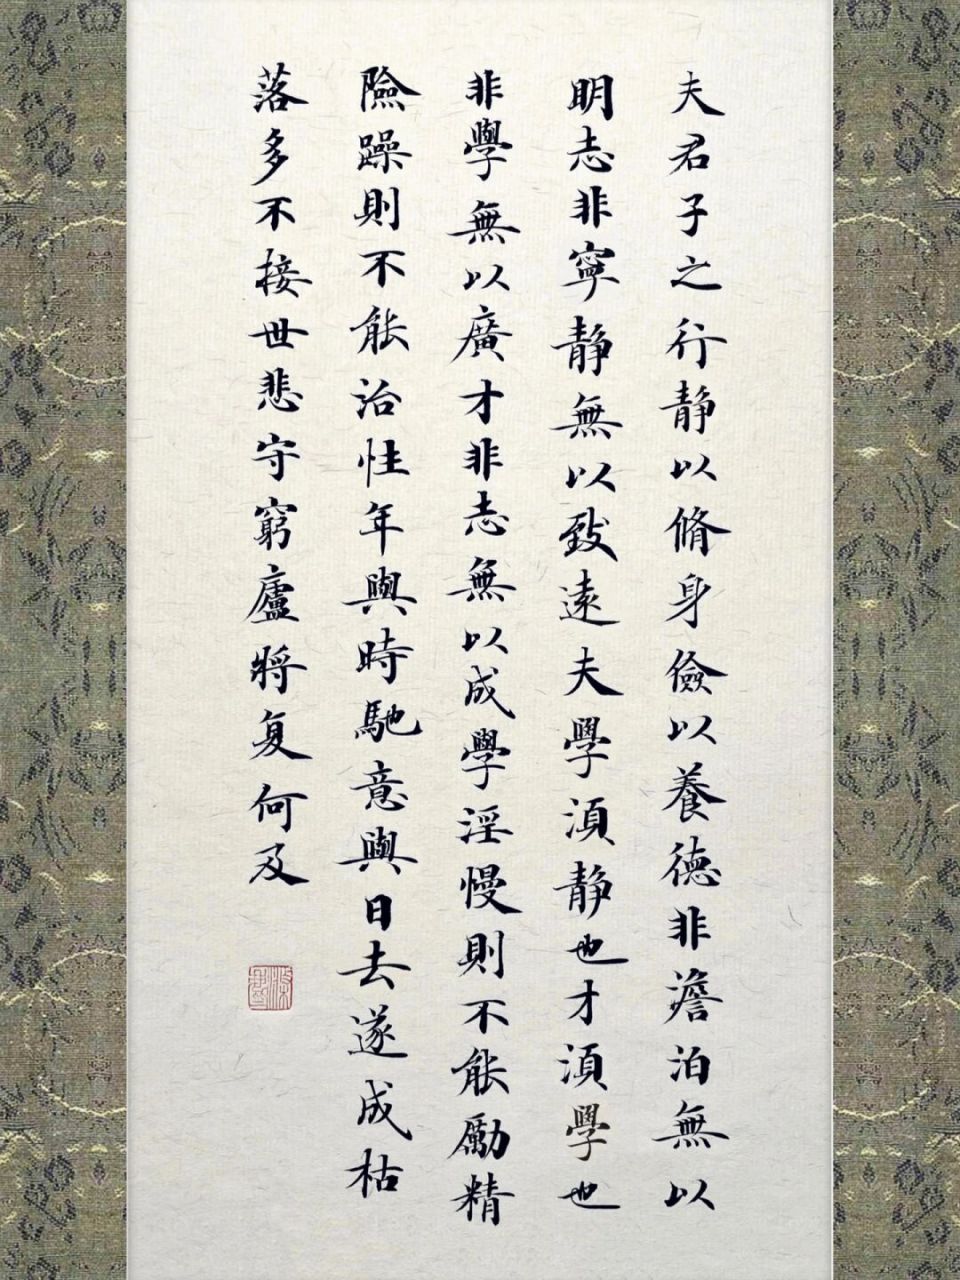 夫君子之行静以脩身儉以養德非澹泊無以
明志非寧静無以致遠夫學湏静也才湏學也
非學無以廣才非志無以成學淫慢則不能勵精
險躁則不能治性年與時馳意與日去遂成枯
落多不接世悲守窮廬將复何及